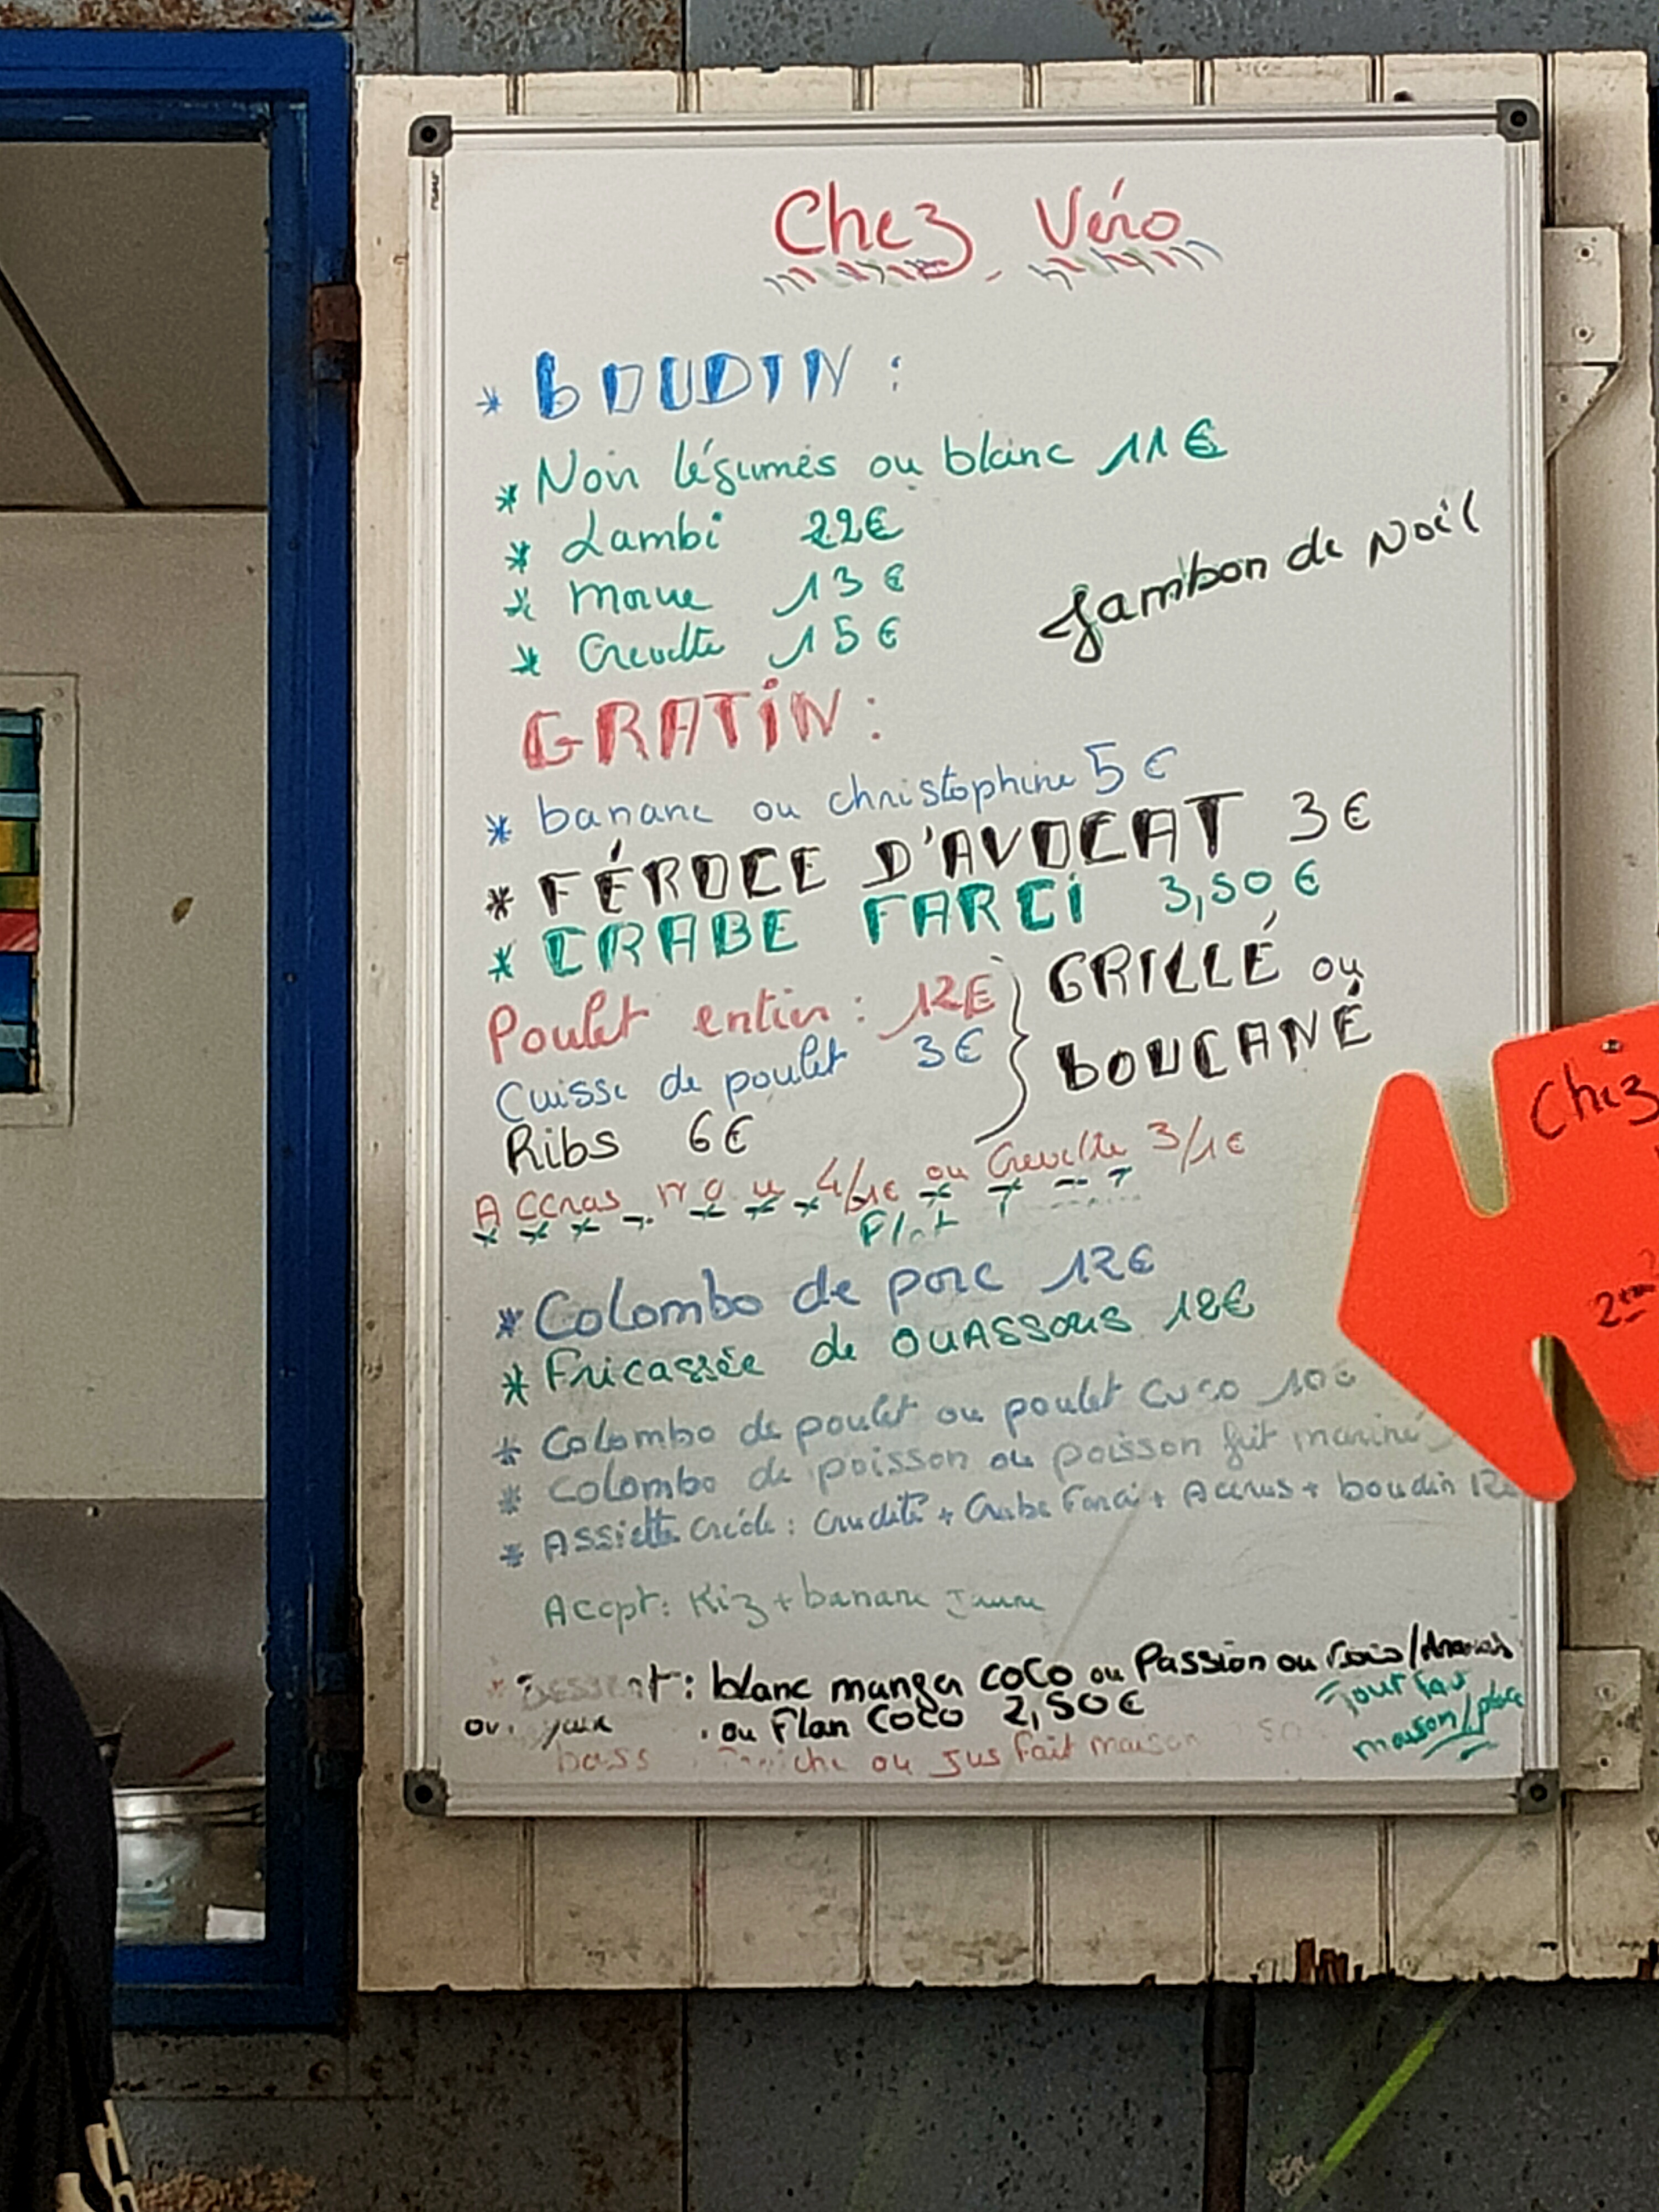 Chez Véro
* bOUDIN :
* Noir légumes ou blanc 11€
* Lambi 22€
* Morue 13€
* Crevette 15€
Jambon de Noël
GRATiN :
* banane ou christophine 5€
* FÉROCE D'AVOCAT 3€
* CRABE FARCi 3,50€
Poulet entier : 12€
Cuisse de poulet 3€
Ribs 6€
GRILLÉ ou
bOUCANÉ
Accras 4/1€ ou Crevette 3/1€
* Colombo de porc 12€
* Fricassée de OUASSOUS
* Colombo de poulet ou poulet Coco 10€
* Colombo de poisson ou poisson fait mariné
* Assiette Créole : Crudité + Crabe Farci + Accras + boudin
Accpt: Riz + banane Jaune
* Dessert : blanc manger coco ou Passion ou
ou Flan Coco 2,50€
ou Jus Fait maison
Tout Fait
maison/place
Chez